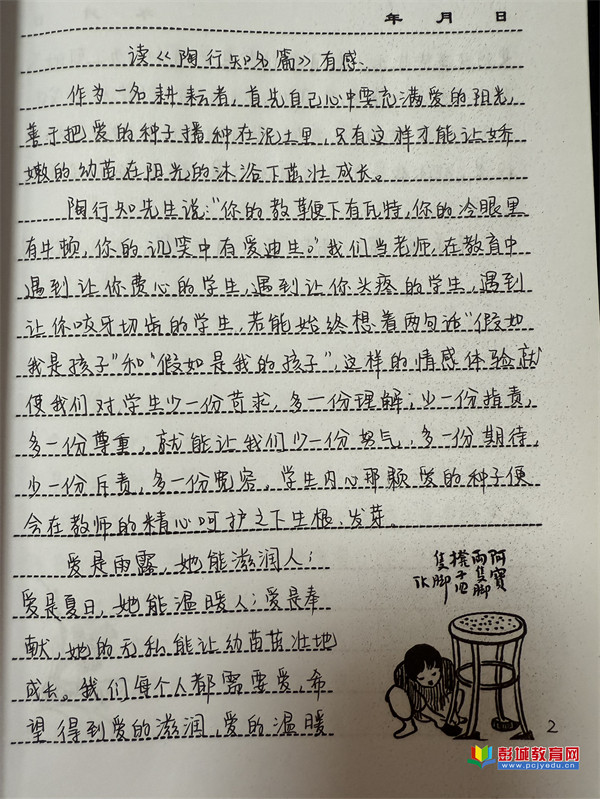 年 月 日
读《陶行知名篇》有感
作为一名耕耘者,首先自己心中要充满爱的阳光,
善于把爱的种子播种在泥土里,只有这样才能让娇
嫩的幼苗在阳光的沐浴下茁壮成长。
陶行知先生说:"你的教鞭下有瓦特,你的冷眼里
有牛顿,你的讥笑中有爱迪生。"我们当老师,在教育中
遇到让你费心的学生,遇到让你头疼的学生,遇到
让你咬牙切齿的学生,若能始终想着两句话"假如
我是孩子"和"假如是我的孩子",这样的情感体验就
使我们对学生少一份苛求,多一份理解;少一份指责,
多一份尊重,就能让我们少一份怒气,多一份期待,
少一份斥责,多一份宽容。学生内心那颗爱的种子便
会在教师的精心呵护之下生根、发芽。
爱是雨露,她能滋润人;
爱是夏日,她能温暖人;爱是奉
献,她的无私能让幼苗茁壮地
成长。我们每个人都需要爱,希
望得到爱的滋润,爱的温暖
阿寶
兩隻脚
櫈子四
隻脚
TK
2
彭城教育网
www.pcjyedu.cn